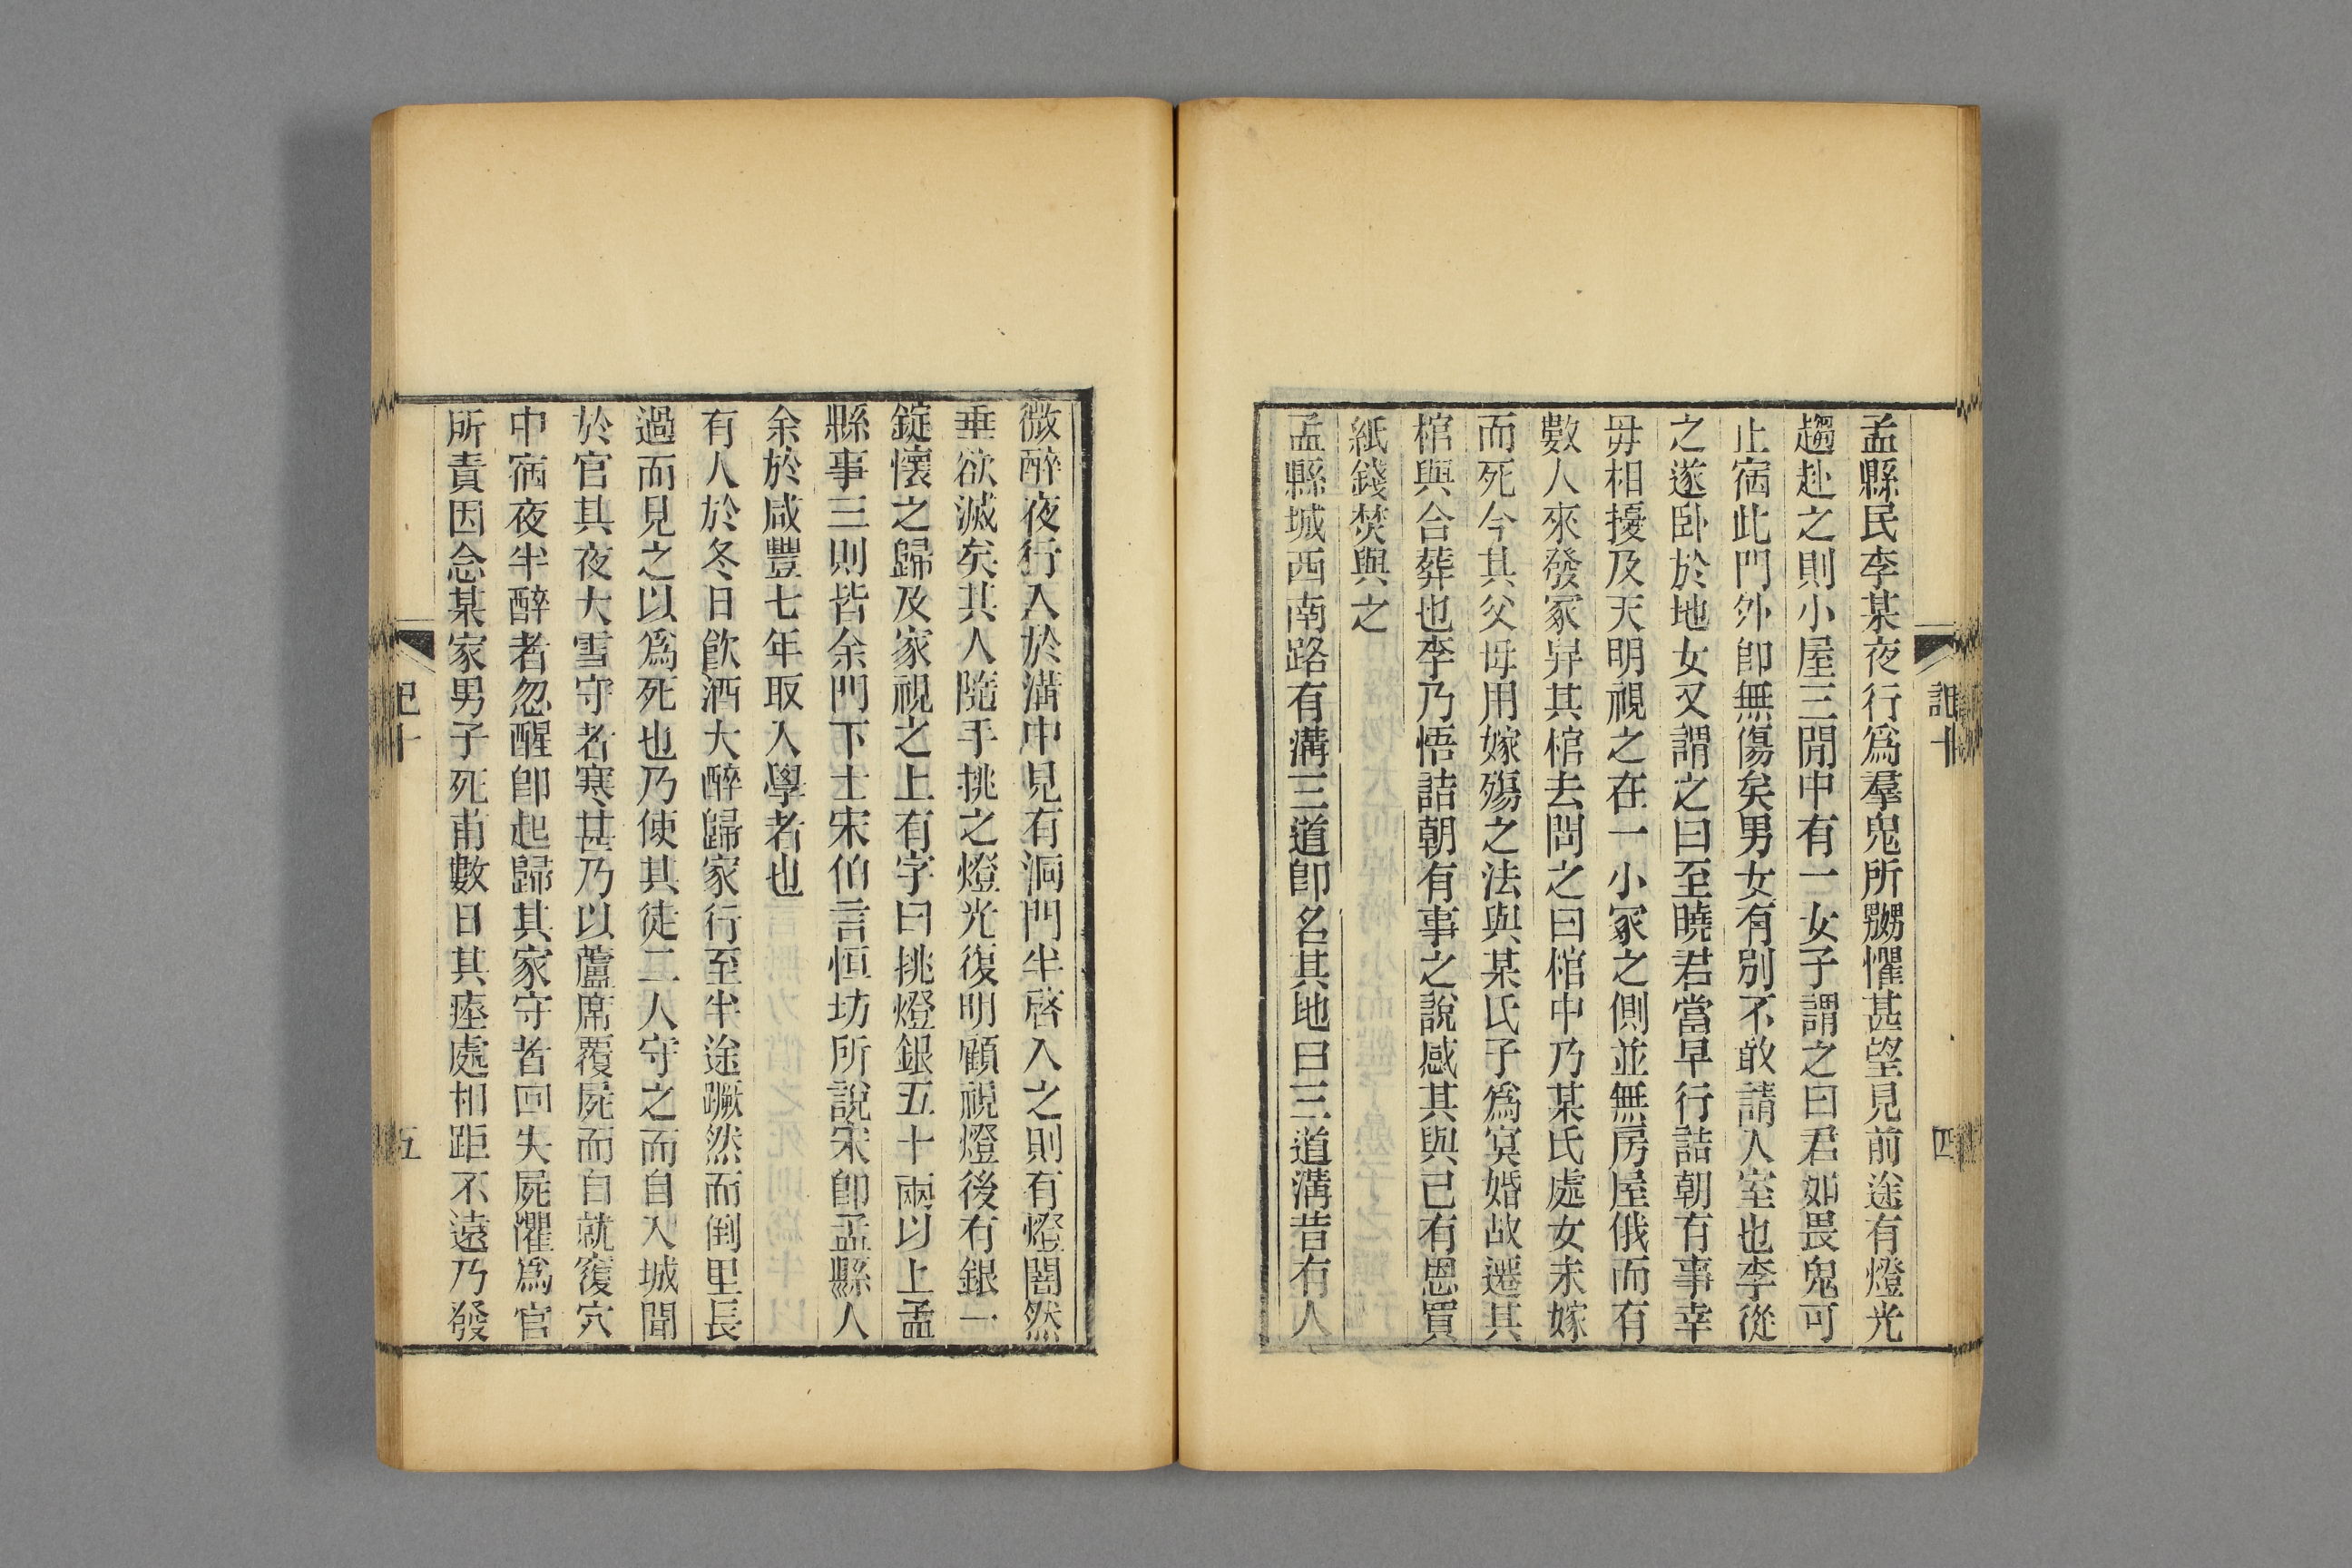 孟縣民李某夜行爲羣鬼所嬲懼甚望見前途有燈光
趨赴之則小屋三閒中有一女子謂之曰君如畏鬼可
止宿此門外卽無傷矣男女有別不敢請入室也李從
之遂臥於地女又謂之曰至曉君當早行詰朝有事幸
毋相擾及天明視之在一小冢之側並無房屋俄而有
數人來發冢舁其棺去問之曰棺中乃某氏處女未嫁
而死今其父母用嫁殤之法與某氏子爲冥婚故遷其
棺與合葬也李乃悟詰朝有事之說感其與己有恩買
紙錢焚與之
孟縣城西南路有溝三道卽名其地曰三道溝昔有人
四
微醉夜行入於溝中見有洞門半啓入之則有燈闇然
垂欲滅矣其人隨手挑之燈光復明顧視燈後有銀一
錠懷之歸及家視之上有字曰挑燈銀五十兩以上孟
縣事三則皆余門下士宋伯言恒坊所說宋卽孟縣人
余於咸豐七年取入學者也
有人於冬日飮酒大醉歸家行至半途蹶然而倒里長
過而見之以爲死也乃使其徒二人守之而自入城聞
於官其夜大雪守者寒甚乃以蘆席覆屍而自就窑穴
中宿夜半醉者忽醒卽起歸其家守者回失屍懼爲官
所責因念某家男子死甫數日其瘞處相距不遠乃發
五